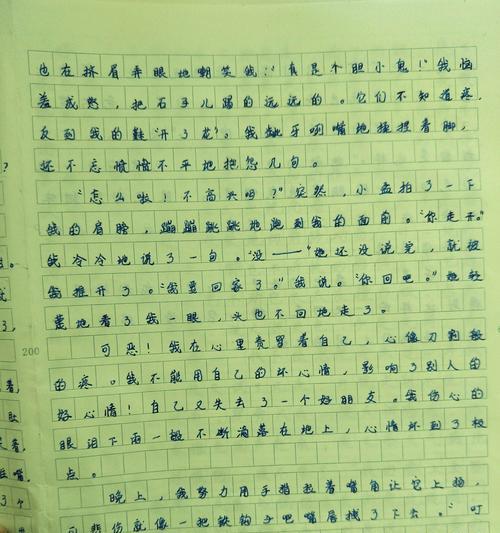 也在挤眉弄眼地嘲笑我:"真是个胆小鬼!"我恼
羞成怒,把石子儿踢的远远的。它们不知道疼,
反到我的鞋"开了花"。我龇牙咧嘴地揉捏着脚,
还不忘愤愤不平地抱怨几句。
"怎么啦!不高兴吗?"突然,小孟拍了一下
我的肩膀,蹦蹦跳跳地跑到我的面前。"你走开。"
我冷冷地说了一句。"没——"她还没说完,就被
我推开了。"我要回家了。"我说。"你回吧。"她轻
蔑地看了我一眼,头也不回地走了。
可恶!我在心里责骂着自己,心像刀割般
200
的疼。我不能用自己的坏心情,影响了别人的
好心情!自己又失去了一个好朋友。我伤心的
眼泪下雨一般不断滴落在地上,心情坏到了极
点。
晚上,我努力用手指拉着嘴角让它上扬,
可悲伤就像一把铁钩子吧嘴唇拽了下去。"叮